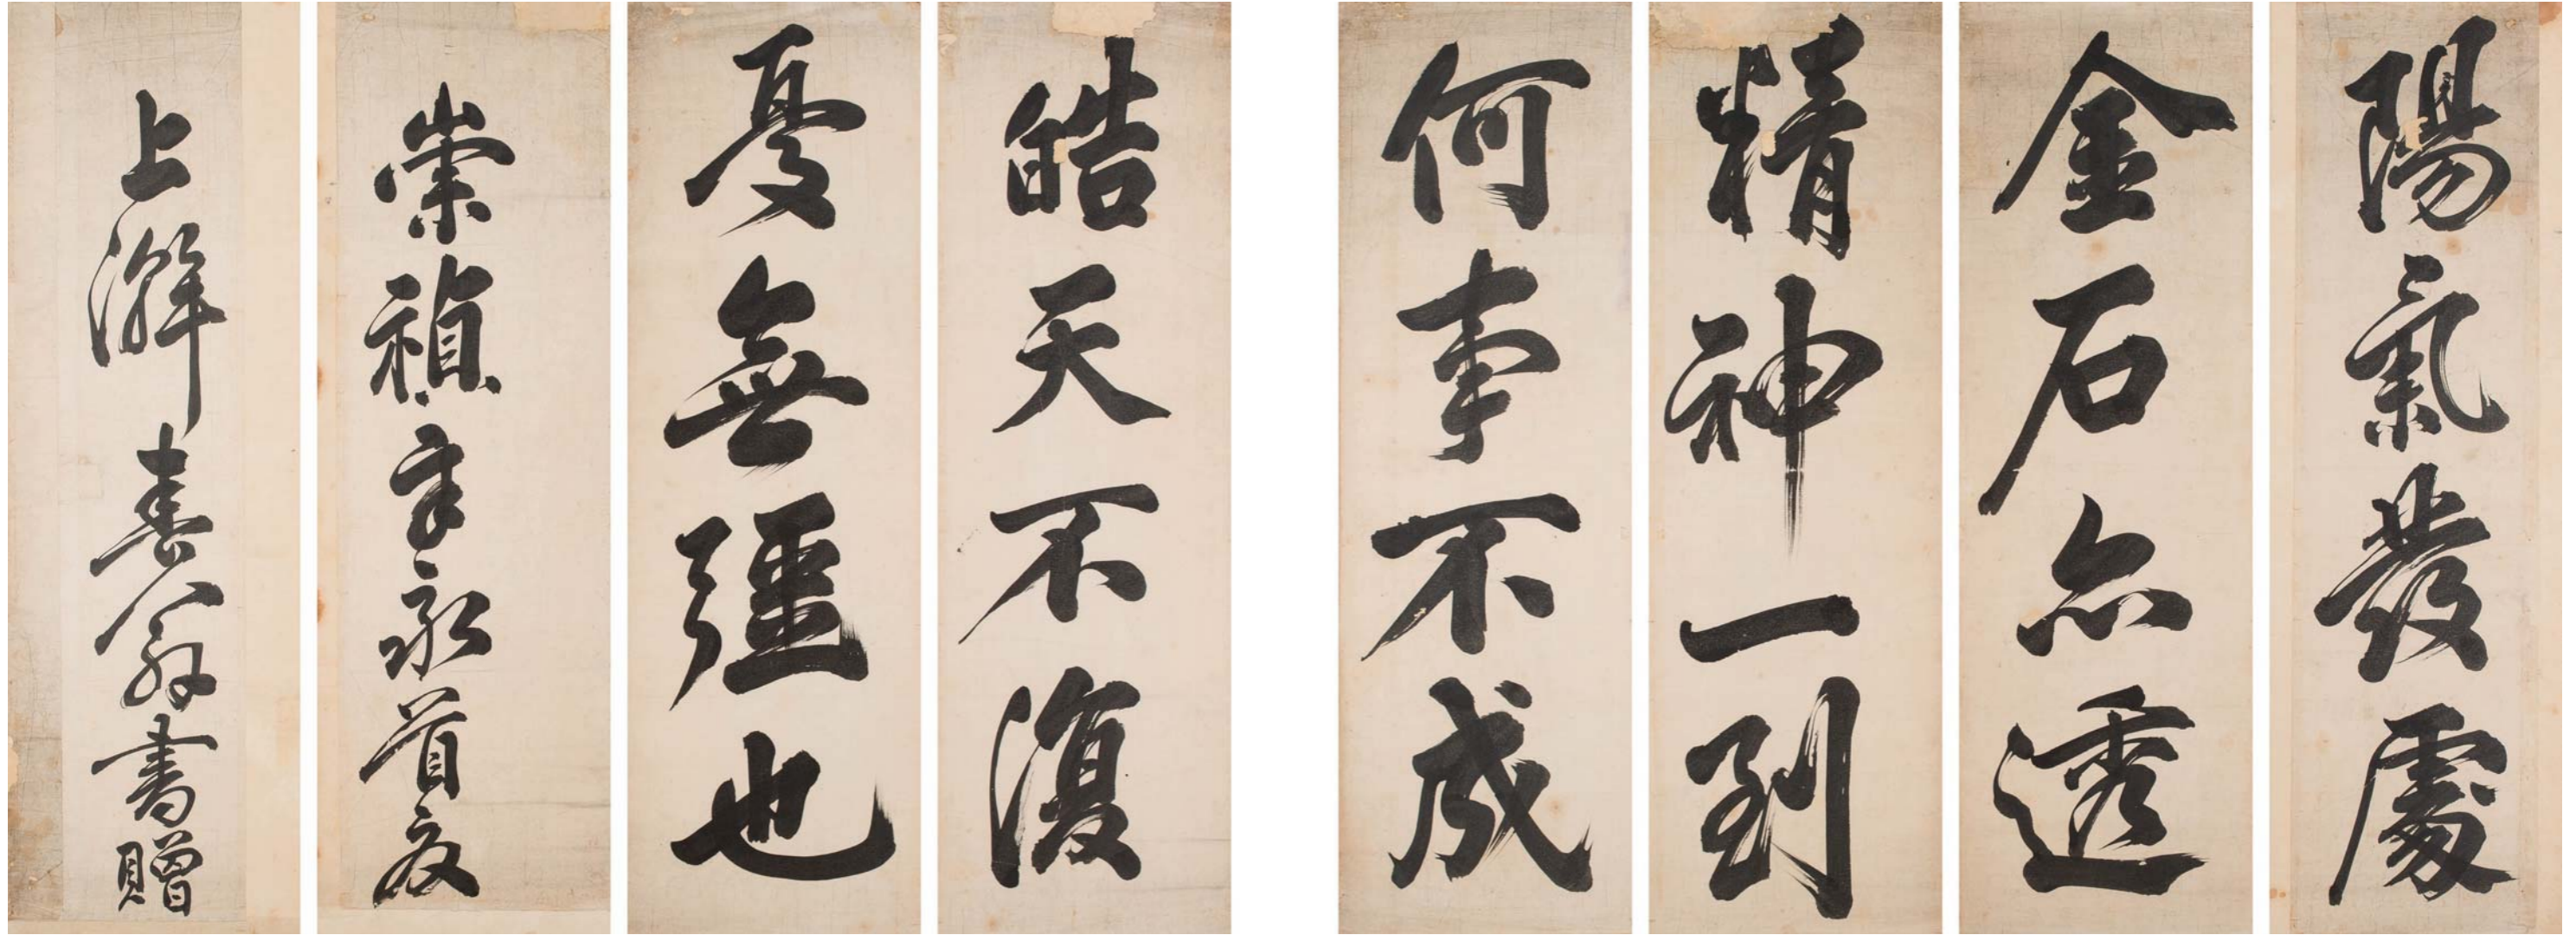 陽氣發處
金石亦透
精神一到
何事不成
皓天不復
憂無彊也
崇禎辛亥首夏
上澣春翁書贈